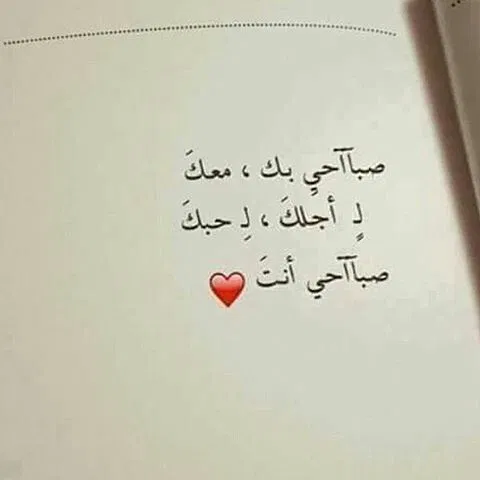 صباآآحيِ بك ، معكَ
لِـ أجلكَ ، لِـ حبكَ
صباآآحي أنتَ ❤